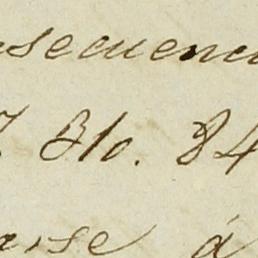 nsecuenci
Blo. 84
arse á